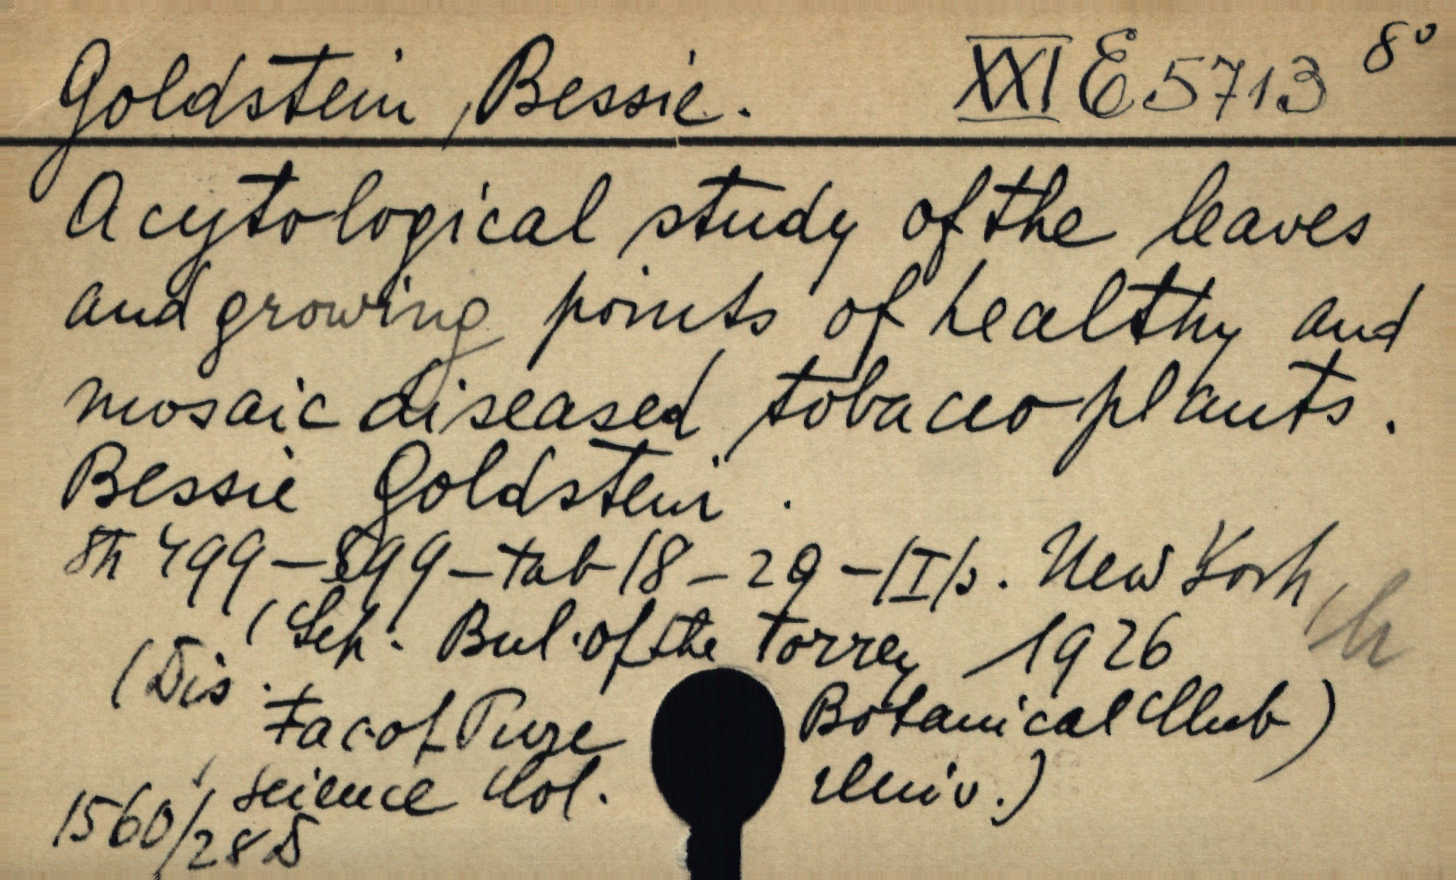 Goldstein, Bessie. XXI E 5713 8°
A cytological study of the leaves
and growing points of healthy and
mosaic diseased tobacco plants.
Bessie Goldstein.
499-599-tab 18-29-/I/s. New York
(Sep. Bul. of the Torrey 1926
(Dis. Botanical Club)
Fac of Pure
Science Col. Univ.)
1560/28 D